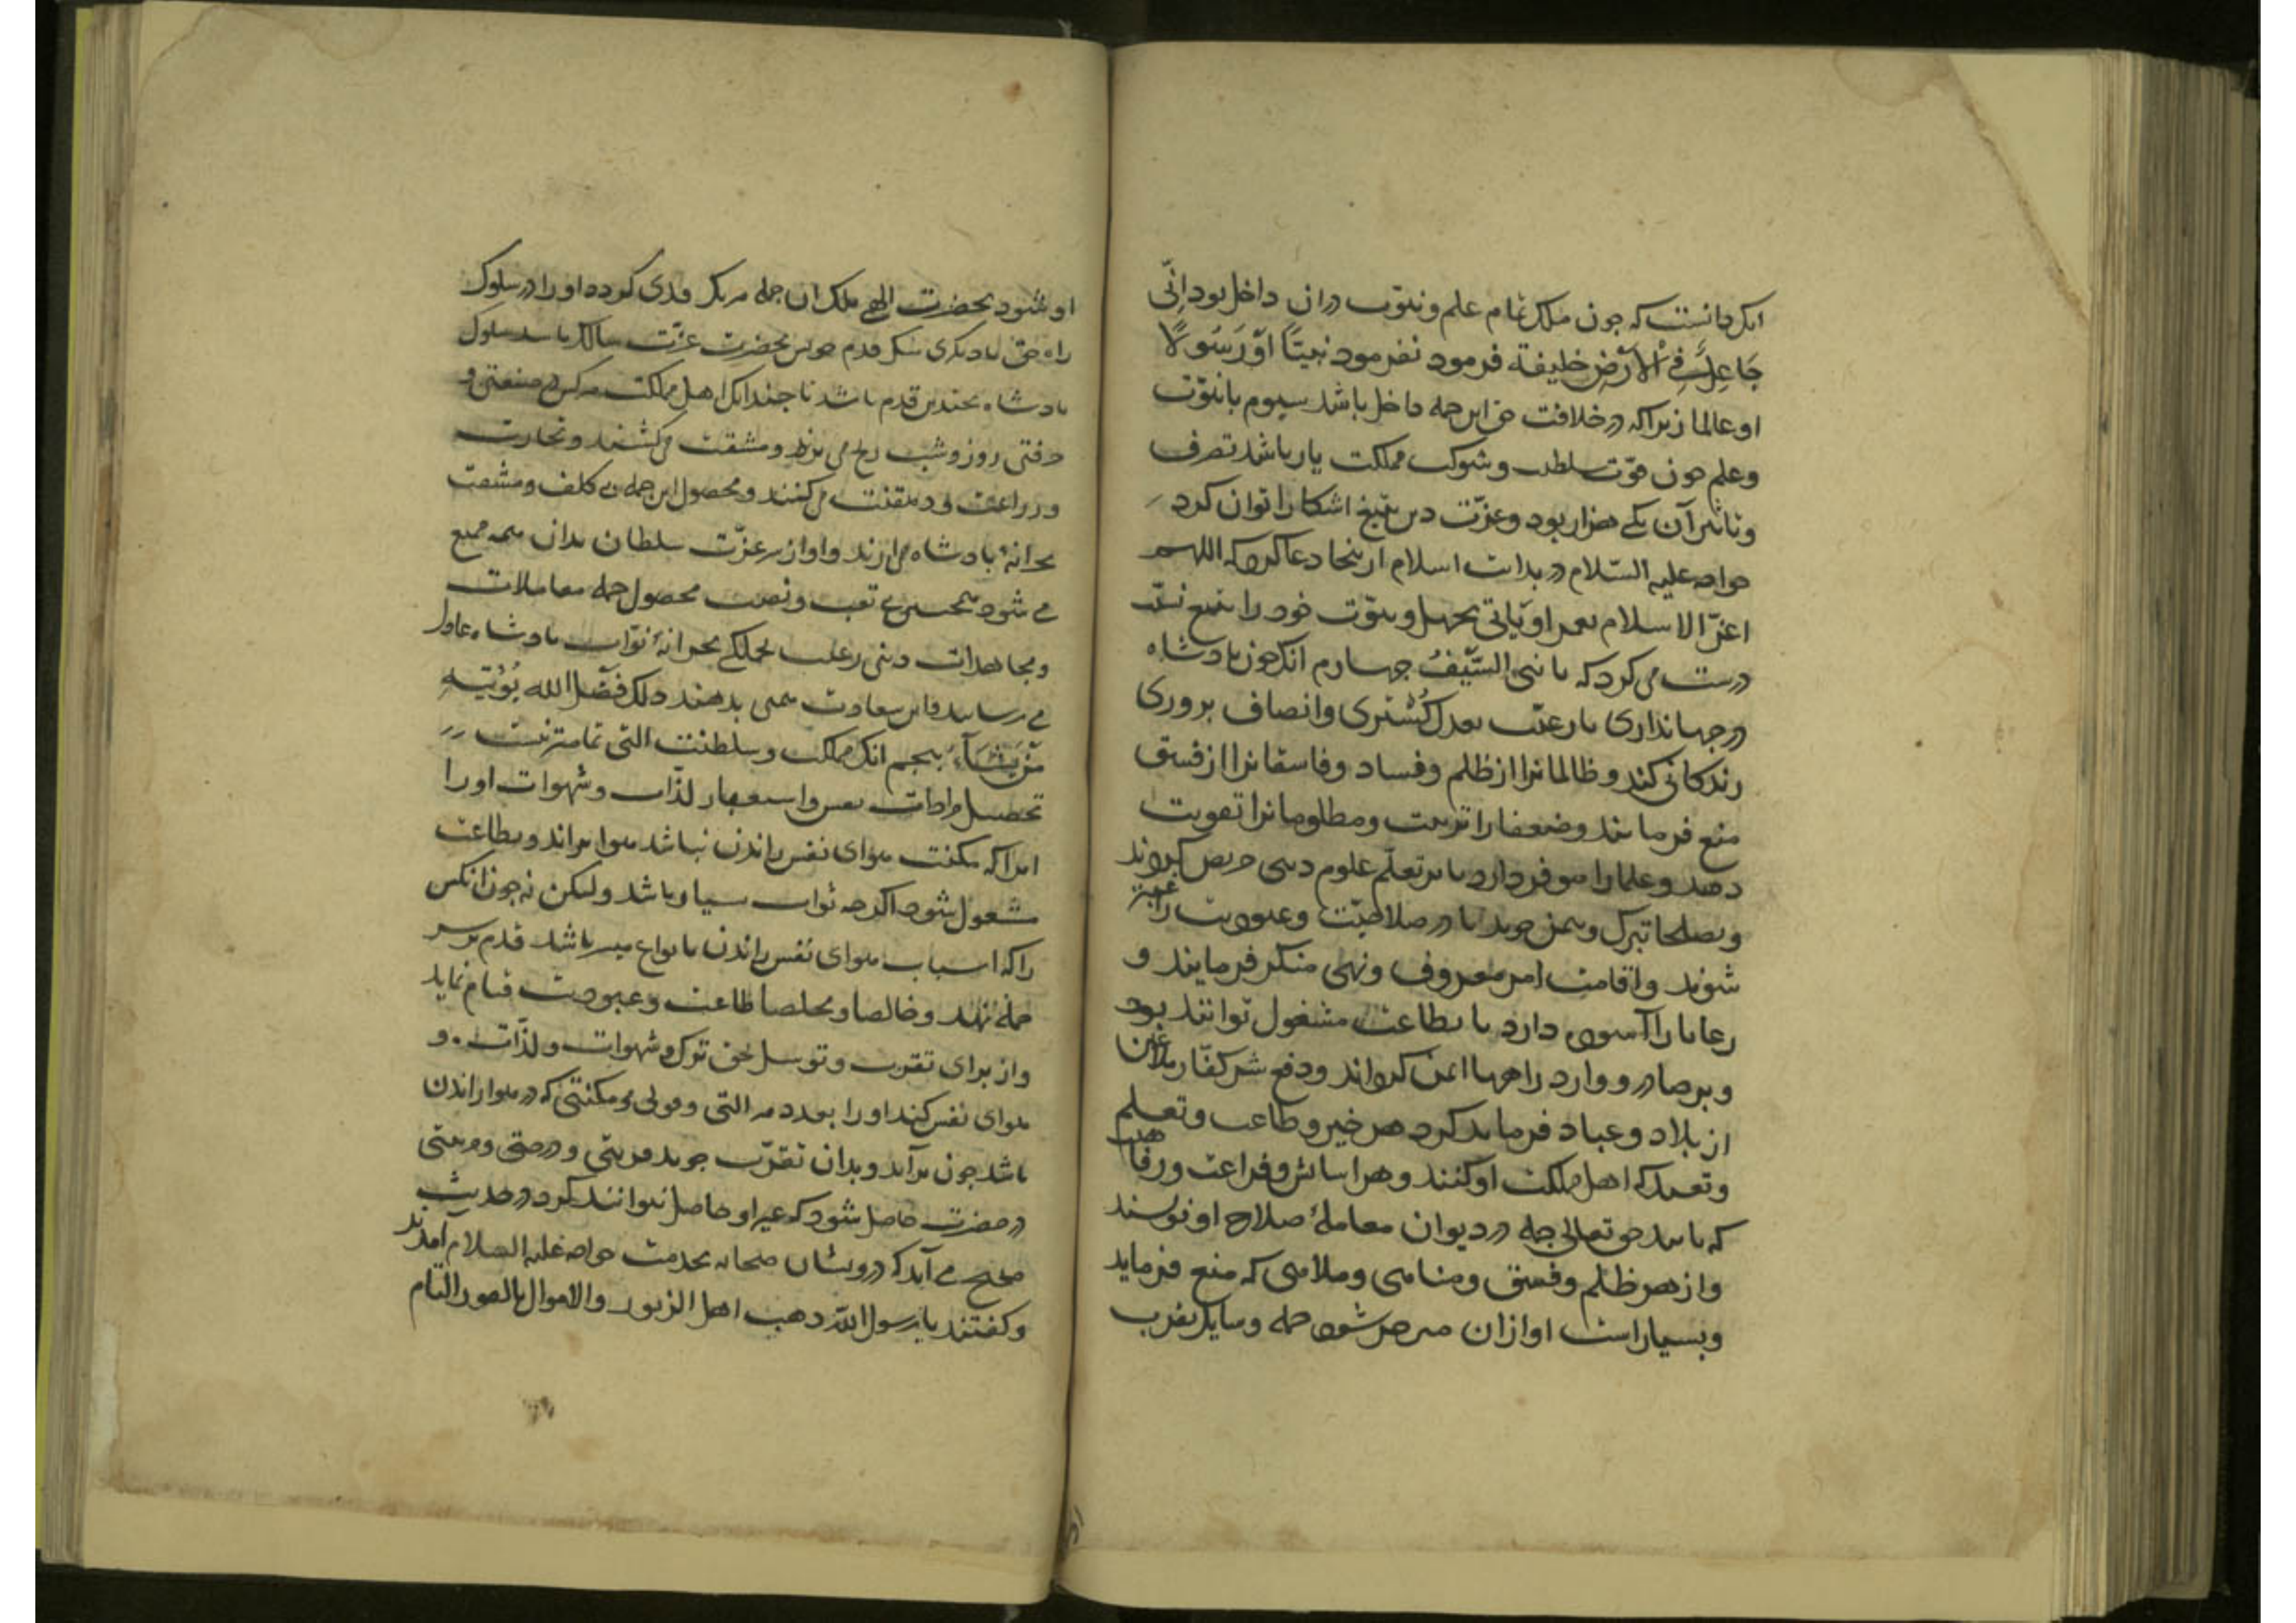 انک دانست که جون ملک تمام علم و نبوّت دران داخل بود اِنّی
جَاعِلٌ فِی الْاَرْضِ خلیفة فرمود نفرمود نبیّاً اَوْ رَسُولًا
او عالما زیراکه در خلافت حق این جمله داخل باشد سیوم با نبوّت
وعلم جون قوّت سلطنت و شوکت مملکت یار باشد تصرف
و تاثیر آن یکی هزار بود و عزّت دین بتیغ اشکارا توان کرد
خواجه علیه السّلام در بدایت اسلام از ینجا دعا کرد که اللهم
اعزّ الاسلام بعمر او بابی جهل و نبوّت خود را بتیغ نسبت
درست می کرد که انا نبیّ السَّیْفُ جهارم انک جون بادشاه
در جهانداری با رعیّت بعدل کُستری و انصاف بروری
زندکانی کند و ظالمانرا از ظلم و فساد و فاسقانرا از فسق
منع فرماید و ضعفا را تربیت و مظلومانرا تقویت
دهد و علما را موقر دارد تا بر تعلّم علوم دینی حریص کردند
و بصلحا تبرک و تیمن جوید تا در صلاحیّت و عبودیت راغبتر
شوند و اقامت امر معروف و نهی منکر فرمایند و
رعایا را آسوده دارد تا بطاعت مشغول توانند بود
و بر صادر و وارد راهها ایمن کرداند و دفع شر کفّار ملاعین
از بلاد و عباد فرماید کرد هر خیر و طاعت و تعلم
و تعبد که اهل مملکت او کنند و هر اسایش و فراغت و رفاهیت
که یابند حق تعالی جمله در دیوان معاملهٔ صلاح او نویسند
و از هر ظلم و فسق و مناهی و ملاهی که منع فرماید
و بسیاراست او ازان شود جمله وسایل تقرب
او شود بحضرت الهی ملک ان جمله هر یک قدمی کرده او را در سلوک
راه حق تا دیکری بیک قدم جون بحضرت عزّت سالک باشد سلوک
بادشاه بجندین قدم باشد تا جندانک اهل مملکت هرکس در صنعتی و
حرفتی روز و شب رنج می برند و مشقت می کشند و تجارت
و زراعت و دهقنت می کنند و محصول این جمله بی کلف و مشقت
بخزانهٔ بادشاه می ارند و او از سر عزّت سلطان بدان همه ممتع
می شود همجنین بی تعب و نصب محصول جمله معاملات
و مجاهدات دینی رعیت بخزانهٔ ثوّاب بادشاه عادل
می رسانند و این سعادت بدهند ذلک فَضْلُ الله یُؤتِیهِ
مَنْ یَشَآءُ بنجم انک مملکت و سلطنت التی تمامترینست
تحصیل مرادات نفس و استیفاء لذّات و شهوات او را
انرا که مکنت هوای نفس راندن نباشد هوا براند و بطاعت
مشغول شود اکرجه ثواب بسیار باشد ولیکن نه جون انکس
را که اسباب هوای نفس راندن بانواع میسر باشد قدم بر سر
جمله نهد و خالصا و مخلصا طاعت و عبودیت قیام نماید
و از برای تقرب و توسل بحق ترک شهوات و لذّات و
هوای نفس کند او را بعدد هر التی و قوتی و مکنتی که در هوا راندن
باشد جون برآید و بدان تقرّب جوید قربتی و درجتی و مرتبتی
در حضرت حاصل شود که غیر او حاصل نتوانند کرد در حدیث
صحیح می آید که درویشان صحابه بخدمت خواجه علیه الصلام آمدند
و کفتند یا رسول اللّه ذهب اهل الزبور والاموال بالصور التام